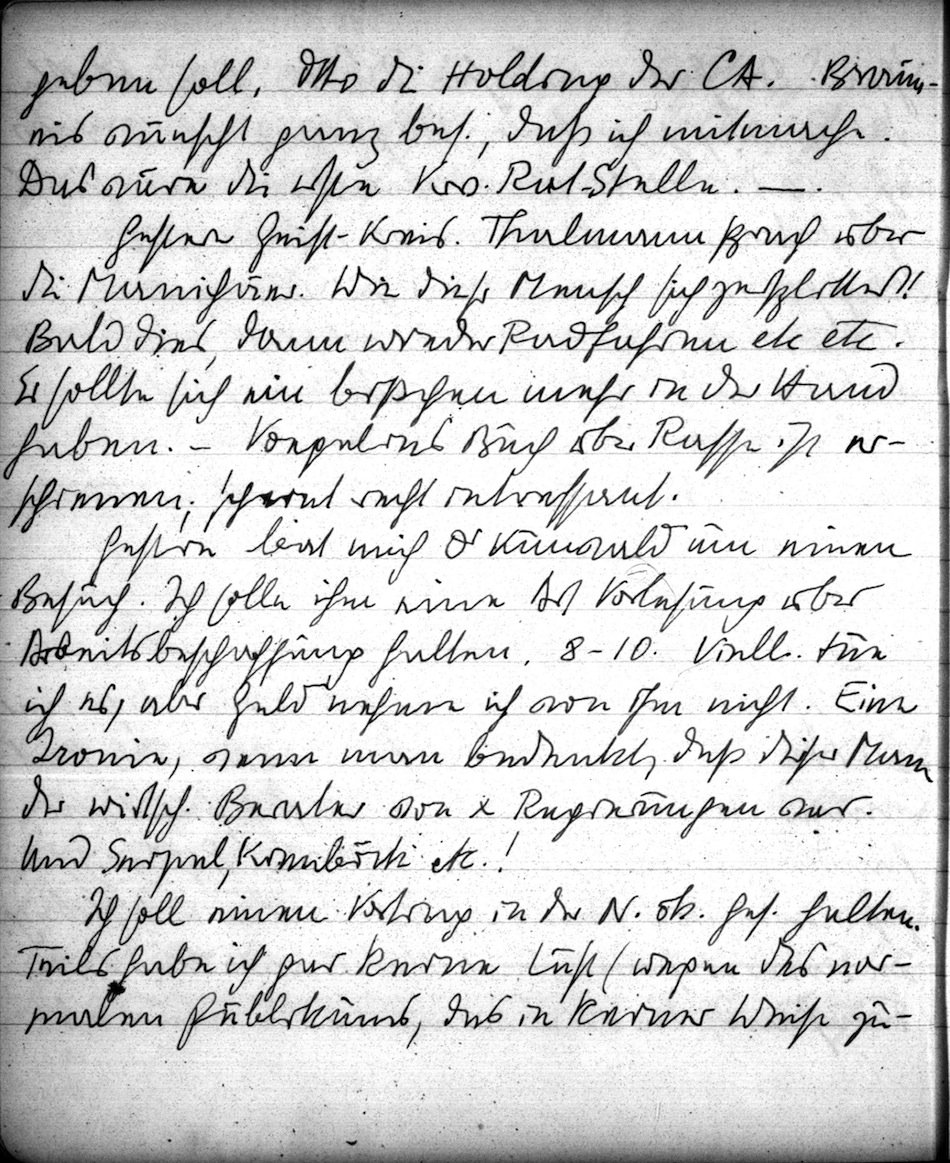 geben soll. Dtto die Holding der CA. Braun-
eis wünscht ganz bes., daß ich mitmache.
Das wäre die erste Verw. Rat-Stelle. —.
Gestern Geist-Kreis. Thalmann sprach über
die Manichäer. Wie dieser Mensch sich zersplittert!
Bald dies, dann wieder Radfahren etc etc.
Er sollte sich ein bißchen mehr in der Hand
haben. – Voegelins Buch über Rasse ist er-
schienen; scheint recht interessant.
Gestern bat mich Dr Kunwald um einen
Besuch. Ich solle ihm eine Art Vorlesung über
Arbeitsbeschaffung halten. 8–10. Viell. tue
ich es, aber Geld nehme ich von ihm nicht. Eine
Ironie, wenn man bedenkt, daß dieser Mann
der wirtsch. Berater von x Regierungen war.
Und Seipel, Kienböck etc.!
Ich soll einen Vortrag in der N. ök. Ges. halten.
Teils habe ich gar keine Lust (wegen des nor-
malen Publikums, das in keiner Weise zu-